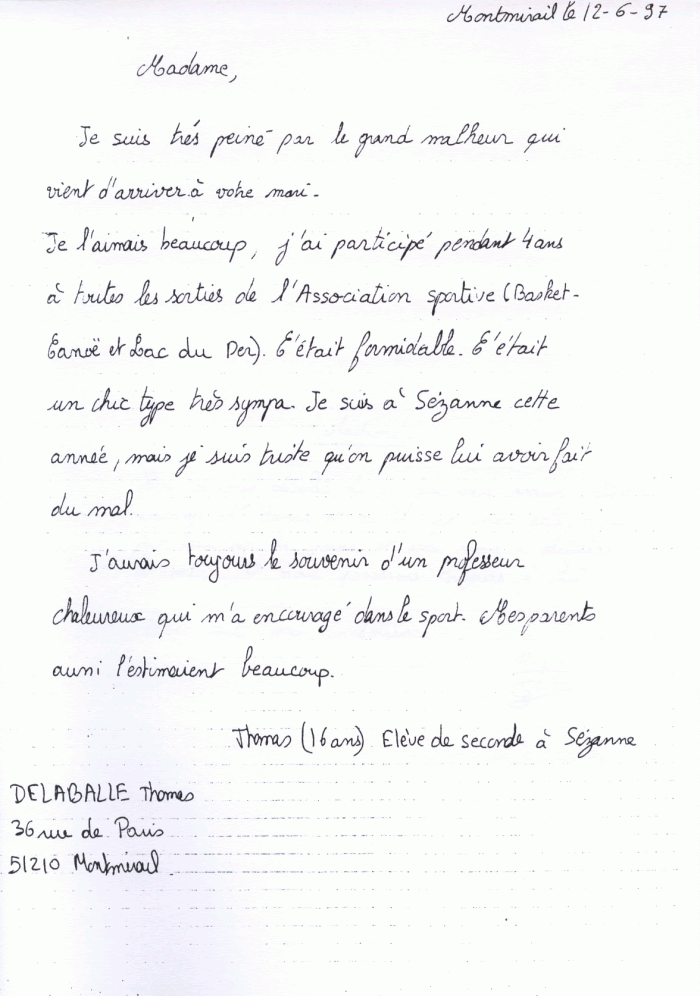 Montmirail le 12-6-97
Madame,
Je suis trés peiné par le grand malheur qui
vient d'arriver à votre mari.
Je l'aimais beaucoup, j'ai participé pendant 4 ans
à toutes les sorties de l'Association sportive (Basket-
Canoë et Lac du Der). C'était formidable. C'était
un chic type très sympa. Je suis à Sézanne cette
année, mais je suis triste qu'on puisse lui avoir fait
du mal.
J'aurais toujours le souvenir d'un professeur
chaleureux qui m'a encouragé dans le sport. Mes parents
aussi l'estimaient beaucoup.
Thomas (16 ans) Elève de seconde à Sézanne
DELABALLE Thomas
36 rue de Paris
51210 Montmirail